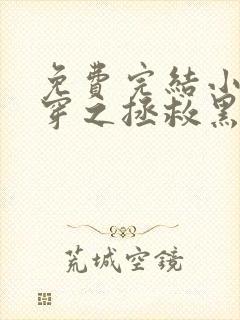 免費完結小
穿之拯救黑
荒城空鏡